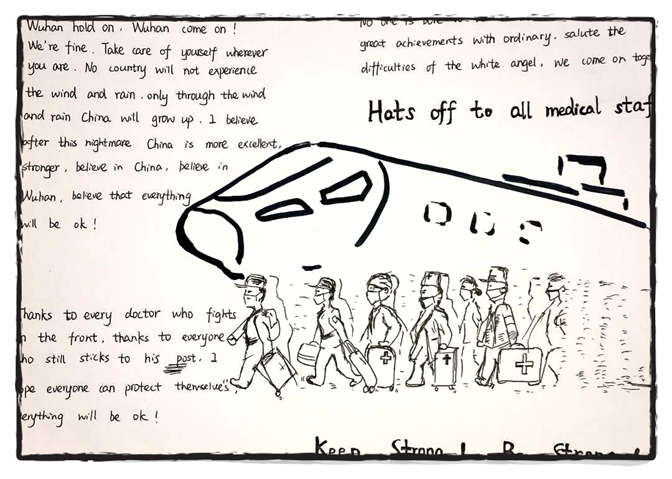 Wuhan hold on. Wuhan come on!
We're fine. Take care of yourself wherever
you are. No country will not experience
the wind and rain. only through the wind
and rain China will grow up. I believe
after this nightmare China is more excellent,
stronger, believe in China, believe in
Wuhan, believe that everything
will be ok!
No one is
great achievements with ordinary. salute the
difficulties of the white angel, we come on toge
Hats off to all medical staf
hanks to every doctor who fights
n the front, thanks to everyone
ho still sticks to his post. I
pe everyone can protect themselves
erything will be ok!
Keep Strong! Be Strong!